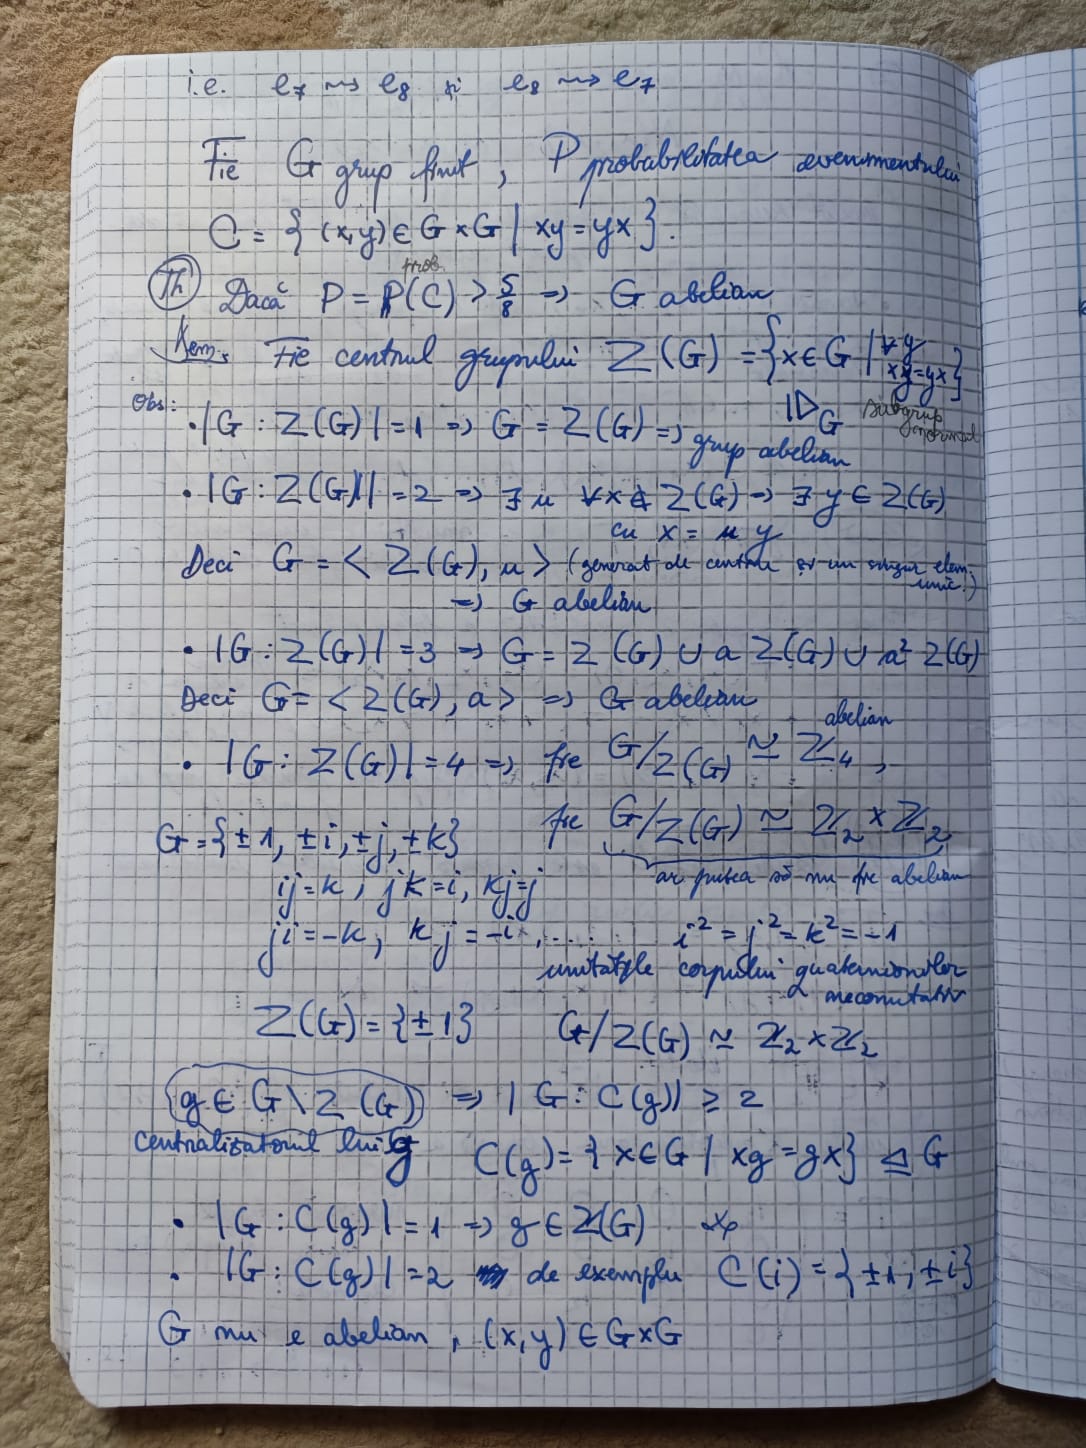 i.e. e₇ ⇝ e₈ și e₈ ⇝ e₇
Fie G grup finit, P probabilitatea evenimentului
C = { (x,y) ∈ G × G | xy = yx }.
prob.
(Th) Dacă P = P(C) > 5/8 => G abelian
Dem. Fie centrul grupului Z(G) = {x ∈ G | ∀y xy=yx}
Obs: G subgrup normal
• |G : Z(G)| = 1 => G = Z(G) => grup abelian
• |G : Z(G)| = 2 => ∃ u ∀x ∉ Z(G) → ∃ y ∈ Z(G)
cu x = u y
Deci G = < Z(G), u > (generat de centru și un singur elem. unic!)
=> G abelian
• |G : Z(G)| = 3 => G = Z(G) ∪ a Z(G) ∪ a² Z(G)
Deci G = < Z(G), a > => G abelian
abelian
• |G : Z(G)| = 4 => fie G/Z(G) ≃ Z₄,
fie G/Z(G) ≃ Z₂ × Z₂
G = {±1, ±i, ±j, ±k} ar putea să nu fie abelian
ij = k, jk = i, kj = j
ji = -k, kj = -i, .... i² = j² = k² = -1
unitățile corpului quaternionilor
necomutativ
Z(G) = {±1} G/Z(G) ≃ Z₂ × Z₂
g ∈ G \ Z(G) => |G : C(g)| ≥ 2
centralizatorul lui g C(g) = { x ∈ G | xg = gx } ⊴ G
• |G : C(g)| = 1 => g ∈ Z(G)
• |G : C(g)| = 2 de exemplu C(i) = {±1, ±i}
G nu e abelian, (x,y) ∈ G×G